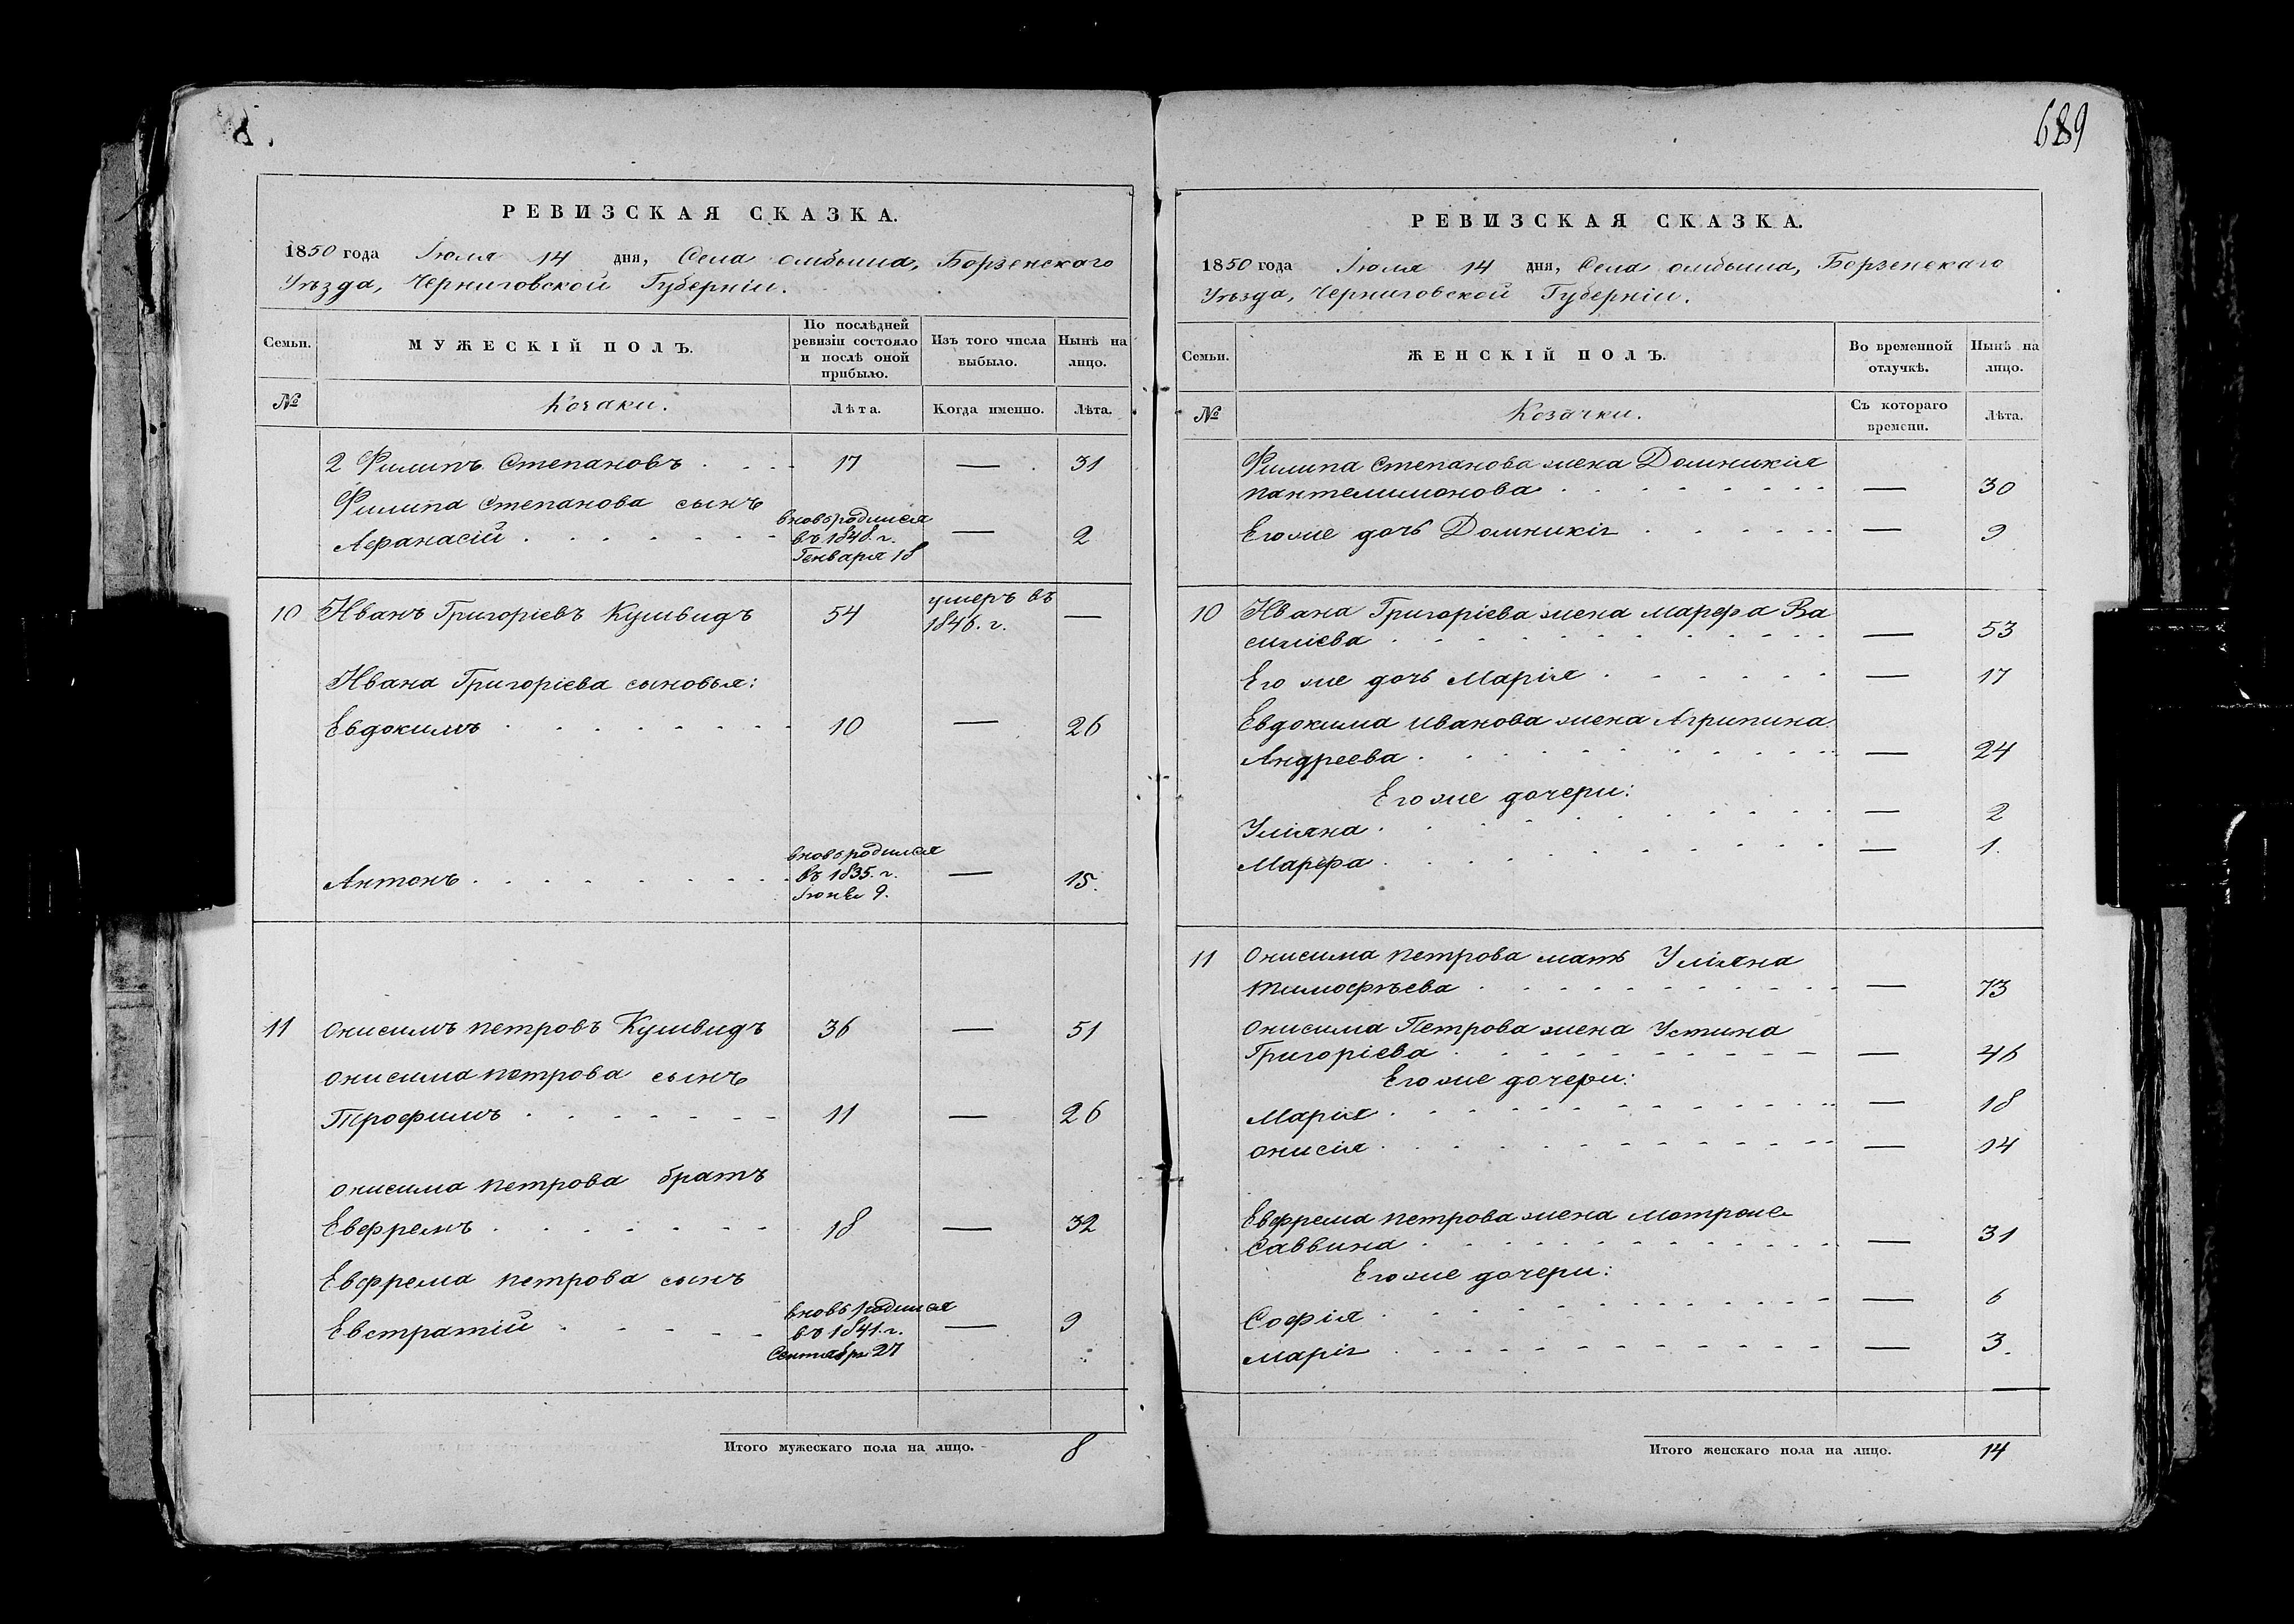 РЕВИЗСКАЯ СКАЗКА.
1850 года Іюля 14 дня, Села омбыша, Борзенскаго
Уѣзда, Черниговской Губерніи.
Семьи.
МУЖЕСКІЙ ПОЛЪ.
По послѣдней
ревизіи состояло
и послѣ оной
прибыло.
Изъ того числа
выбыло.
Нынѣ на
лицо.
№
Козаки.
Лѣта.
Когда именно.
Лѣта.
2 Филипъ Степановъ . . . 17 — 31
Филипа Степанова сынъ
Афанасій . . . . . . . вновь родился
въ 1848. г.
Генваря 18 — 2
10 Иванъ Григоріевъ Кушвидъ 54 умеръ въ
1846. г. —
Ивана Григоріева сыновья:
Евдокимъ . . . . . . . 10 — 26
Антонъ . . . . . . . . вновь родился
въ 1835. г.
Іюня 9. — 15.
11 Онисимъ Петровъ Кушвидъ 36 — 51
Онисима Петрова сынъ
Трофимъ . . . . . . . 11 — 26
Онисима Петрова братъ
Евфремъ . . . . . . . 18 — 32
Евфрема Петрова сынъ
Евстратій . . . . . вновь родился
въ 1841. г.
Сентября 27 — 9
Итого мужескаго пола на лицо. 8
689
РЕВИЗСКАЯ СКАЗКА.
1850 года Іюля 14 дня, Села омбыша, Борзенскаго
Уѣзда, Черниговской Губерніи.
Семьи.
ЖЕНСКІЙ ПОЛЪ.
Во временной
отлучкѣ.
Нынѣ на
лицо.
№
Козачки.
Съ котораго
времени.
Лѣта.
Филипа Степанова жена Домникія
Пантелимонова . . . . . . . — 30
Его же дочь Домникія . . . . . — 9
10 Ивана Григоріева жена Марфа Ва
силіева . . . . . . . . . . — 53
Его же дочь Марія . . . . . . — 17
Евдокима Иванова жена Агрипина
Андреева . . . . . . . . . . — 24
Его же дочери:
Уліяна . . . . . . . . . . — 2
Марфа . . . . . . . . . . — 1.
11 Онисима Петрова мать Уліяна
Тимофѣева . . . . . . . . . — 73
Онисима Петрова жена Устина
Григоріева . . . . . . . . . — 46
Его же дочери:
Марія . . . . . . . . . . — 18
Онисія . . . . . . . . . . — 14
Евфрема Петрова жена Мотрона
Саввина . . . . . . . . . . — 31
Его же дочери:
Софія . . . . . . . . . . — 6
Марія . . . . . . . . . . — 3.
Итого женскаго пола на лицо. 14